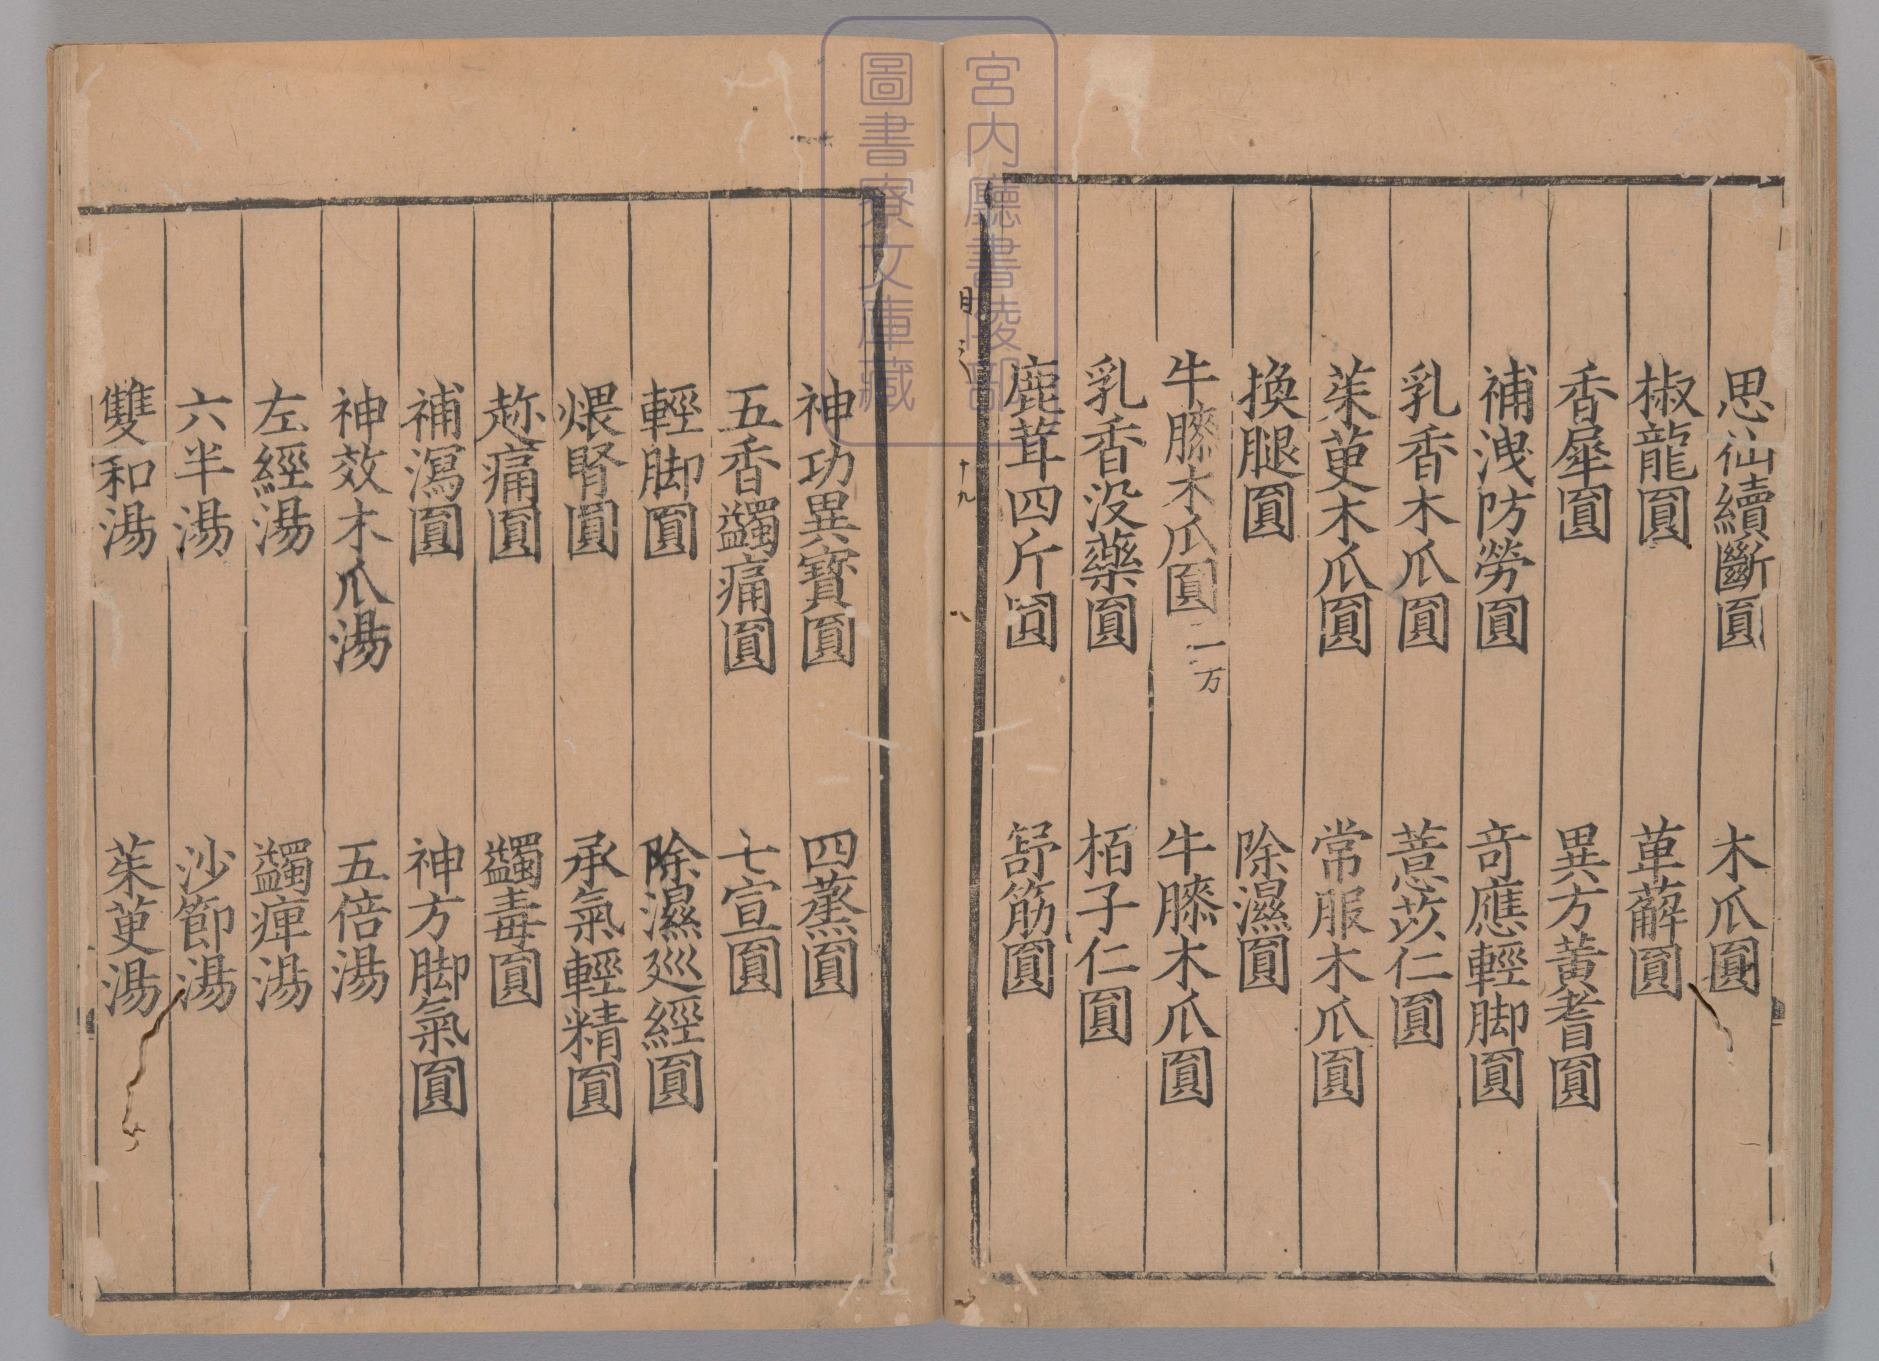 思仙續斷圓　木瓜圓
椒龍圓　萆薢圓
香犀圓　異方黄耆圓
補洩防勞圓　竒應輕脚圓
乳香木瓜圓　薏苡仁圓
茱萸木瓜圓　常服木瓜圓
換腿圓　除濕圓
牛膝木瓜圓 一方　牛膝木瓜圓
乳香没藥圓　栢子仁圓
鹿茸四斤圓　舒筋圓
十九
神功異寳圓　四蒸圓
五香蠲痛圓　七宣圓
輕脚圓　除濕廵經圓
煨腎圓　承氣輕精圓
趂痛圓　蠲毒圓
補瀉圓　神方脚氣圓
神效木瓜湯　五倍湯
左經湯　蠲痺湯
六半湯　沙節湯
雙和湯　茱萸湯
宮内廳書陵部
圖書寮文庫藏